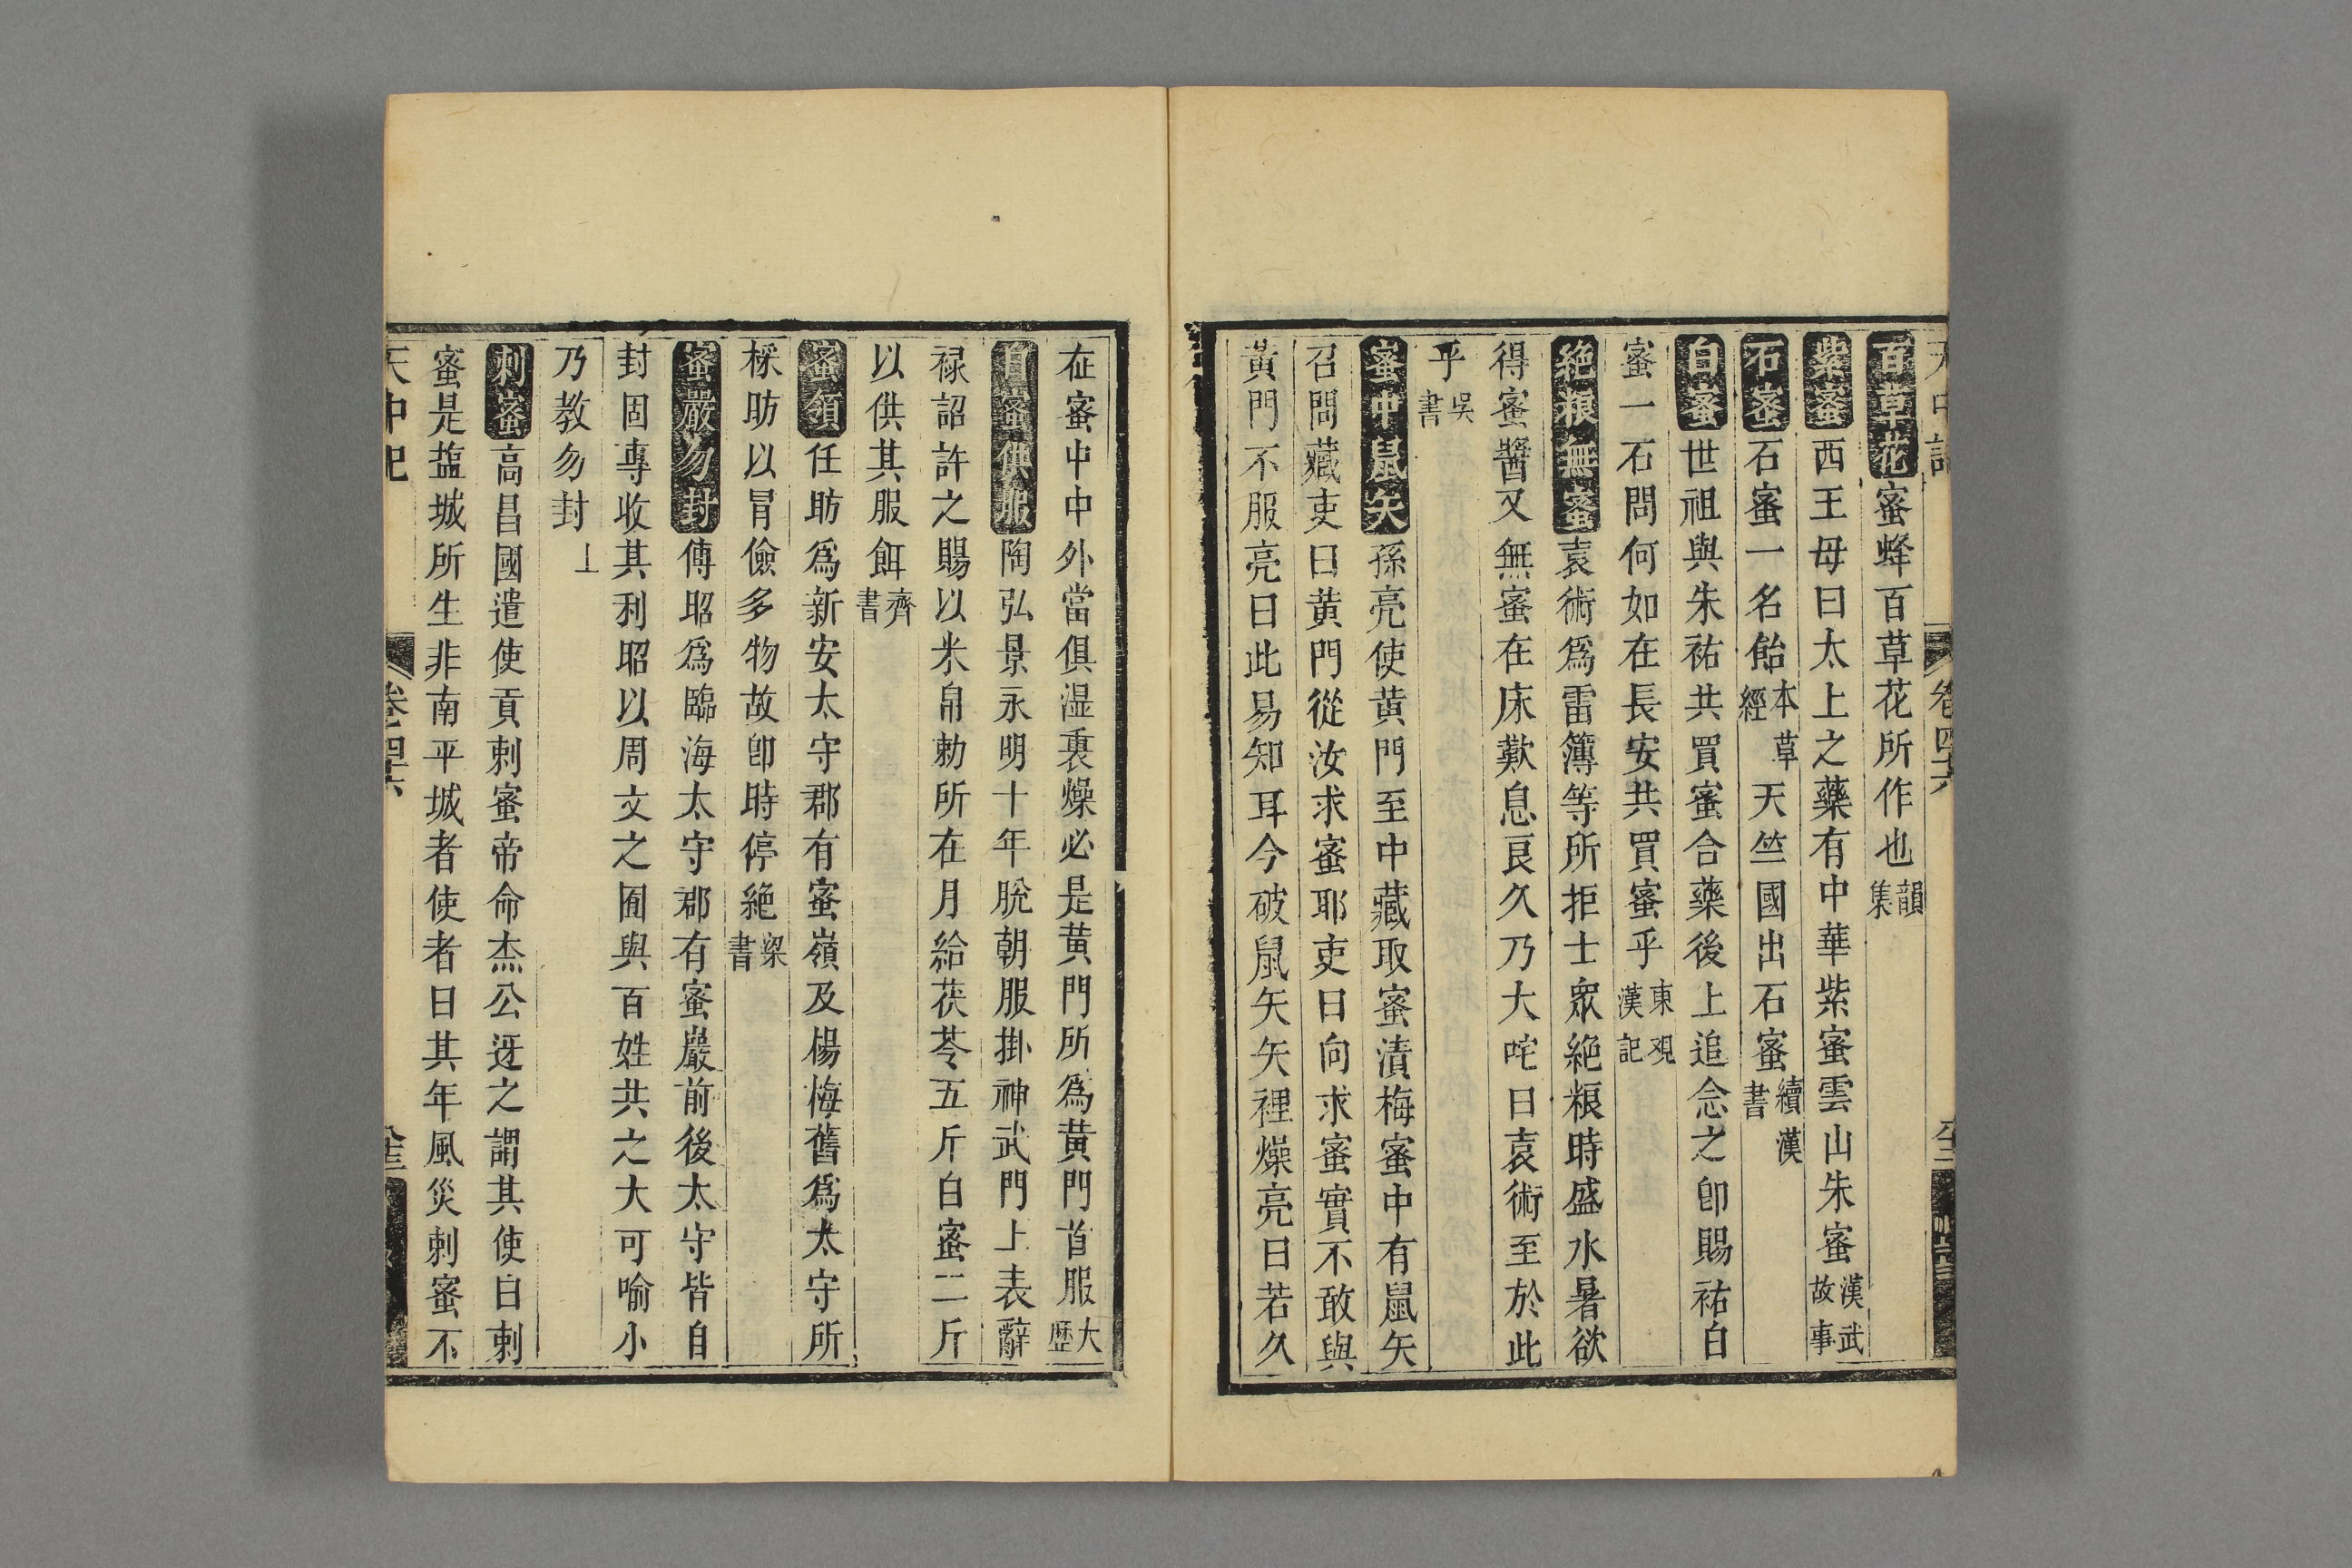 百草花蜜蜂百草花所作也韻集
紫蜜西王母曰太上之藥有中華紫蜜雲山朱蜜漢武故事
石蜜石蜜一名飴本草經天竺國出石蜜續漢書
白蜜世祖與朱祐共買蜜合藥後上追念之卽賜祐白
蜜一石問何如在長安共買蜜乎東觀漢記
絶粮無蜜袁術爲雷簿等所拒士衆絶粮時盛水暑欲
得蜜醬又無蜜在床歎息良久乃大咤曰袁術至於此
乎吳書
蜜中鼠矢孫亮使黄門至中藏取蜜漬梅蜜中有鼠矢
召問藏吏曰黄門從汝求蜜耶吏曰向求蜜實不敢與
黃門不服亮曰此易知耳今破鼠矢矢裡燥亮曰若久
在蜜中中外當俱湿裏燥必是黄門所爲黄門首服大歷
白蜜供服陶弘景永明十年脫朝服掛神武門上表辭
禄詔許之賜以米帛勅所在月給茯苓五斤白蜜二斤
以供其服餌齊書
蜜領任昉爲新安太守郡有蜜嶺及楊梅舊爲太守所
採昉以冒儉多物故卽時停絶梁書
蜜嚴勿封傅昭爲臨海太守郡有蜜巖前後太守皆自
封固專收其利昭以周文之囿與百姓共之大可喻小
乃教勿封上
刺蜜高昌國遣使貢刺蜜帝命杰公迓之謂其使曰刺
蜜是塩城所生非南平城者使者曰其年風災刺蜜不
天中記
卷四十六